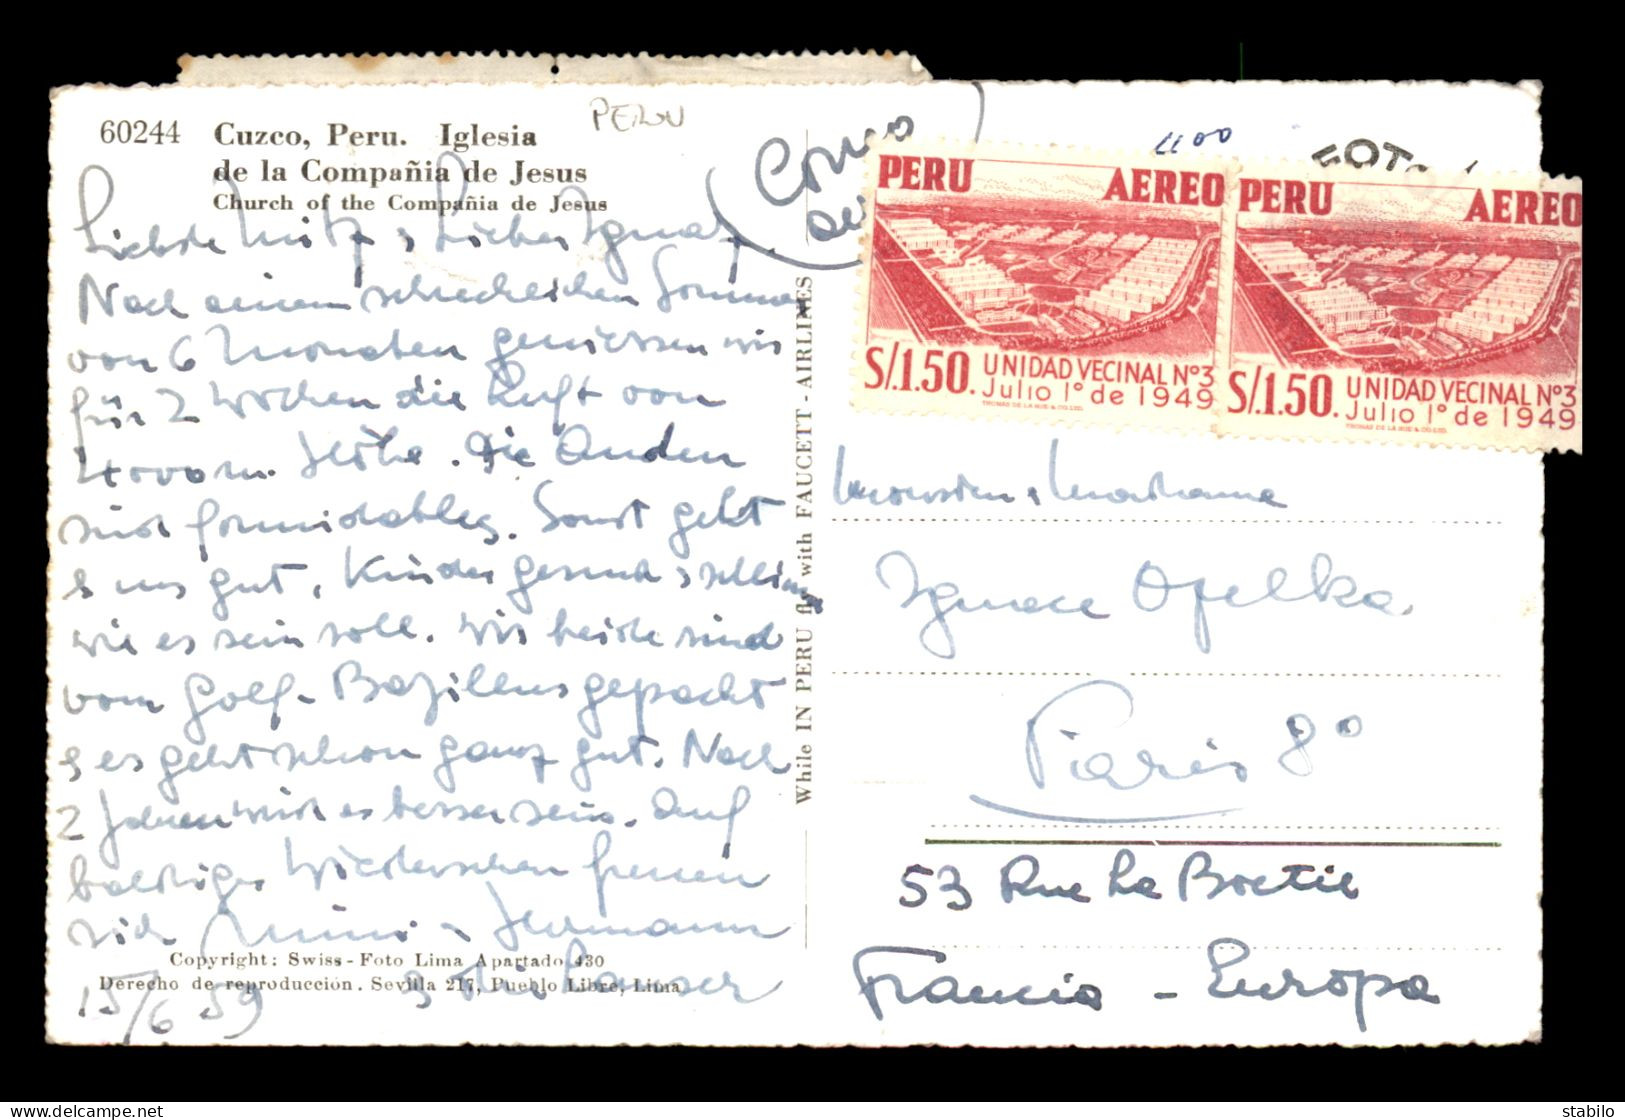 60244 Cuzco, Peru. Iglesia
de la Compañia de Jesus
Church of the Compañia de Jesus
PERU
Liebste Mitz & Lieber Ignaz
Nach einem schrecklichen Sommer
von 6 Monaten geniessen wir
für 2 Wochen die Luft von
4000 m. Höhe. Die Anden
sind formidables. Sonst geht
es uns gut, Kinder gesund &
wie es sein soll. Wir beide sind
vom Golf-Bazillus gepackt
& es geht schon ganz gut. Nach
2 Jahren wird es besser sein. Auf
baldiges Wiedersehen freuen
sich Mimi - Hermann
&
15/6 59
Copyright: Swiss-Foto Lima Apartado 430
Derecho de reproducción. Sevilla 217, Pueblo Libre, Lima
While IN PERU fly with FAUCETT-AIRLINES
Correo
4400
FOTO
PERU AEREO
S/.1.50. UNIDAD VECINAL Nº3
Julio 1º de 1949
THOMAS DE LA RUE & CO. LTD.
PERU AEREO
S/.1.50. UNIDAD VECINAL Nº3
Julio 1º de 1949
THOMAS DE LA RUE & CO. LTD.
Monsieur & Madame
Ignace Opelka
Paris 8º
53 Rue La Boetie
Francia - Europa
stabilo